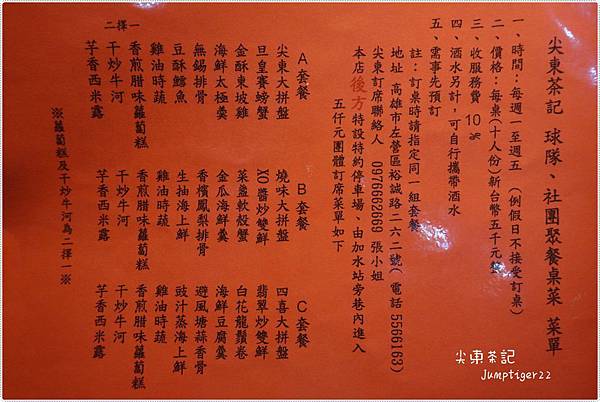 尖東茶記 球隊、社團聚餐桌菜 菜單
一、時間：每週一至週五 (例假日不接受訂桌)
二、價格：每桌(十人份)新台幣五千元整
三、收服務費10%
四、酒水另計，可自行攜帶酒水
五、需事先預訂
註：訂桌時請指定同一組套餐
地址 高雄市左營區裕誠路二六二號( 電話 5566163)
尖東訂席聯絡人 0976862669 張小姐
本店後方特設特約停車場、由加水站旁巷內進入
五仟元團體訂席菜單如下
A套餐
尖東大拼盤
旦皇賽螃蟹
金酥東坡雞
海鮮太極羹
無錫排骨
豆酥鱈魚
雞油時蔬
香煎腊味蘿蔔糕
干炒牛河
芋香西米露
二擇一
B套餐
燒味大拼盤
XO醬炒雙鮮
菜盞軟殼蟹
金瓜海鮮羹
香檳鳳梨排骨
生抽海上鮮
雞油時蔬
香煎腊味蘿蔔糕
干炒牛河
芋香西米露
C套餐
四喜大拼盤
翡翠炒雙鮮
白花龍鬚卷
海鮮豆腐羹
避風塘蒜香骨
豉汁蒸海上鮮
雞油時蔬
香煎腊味蘿蔔糕
干炒牛河
芋香西米露
※蘿蔔糕及干炒牛河為二擇一※
尖東茶記
Jumptiger22